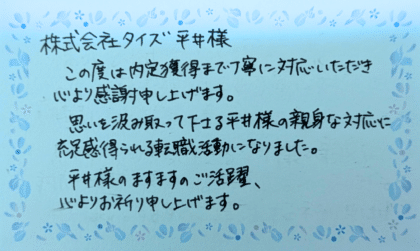 株式会社タイズ 平井様
この度は内定獲得まで丁寧に対応いただき
心より感謝申し上げます。
思いを汲み取って下さる平井様の親身な対応に
充足感得られる転職活動になりました。
平井様のますますのご活躍、
心よりお祈り申し上げます。